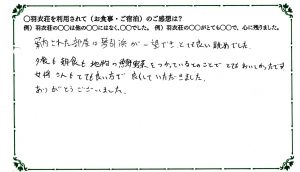 ○羽衣荘を利用されて（お食事・ご宿泊）のご感想は？
例）羽衣荘の○○は他の○○にはなく、○○でした。 例）羽衣荘の○○がとても○○で、心に残りました。
案内された部屋は琴引浜が一望できとても良い眺めでした。
夕食も朝食も地物の魚野菜をつかっているとのことでとてもおいしかったです
女将さんもとても良い方で良くしていただきました。
ありがとうございました。